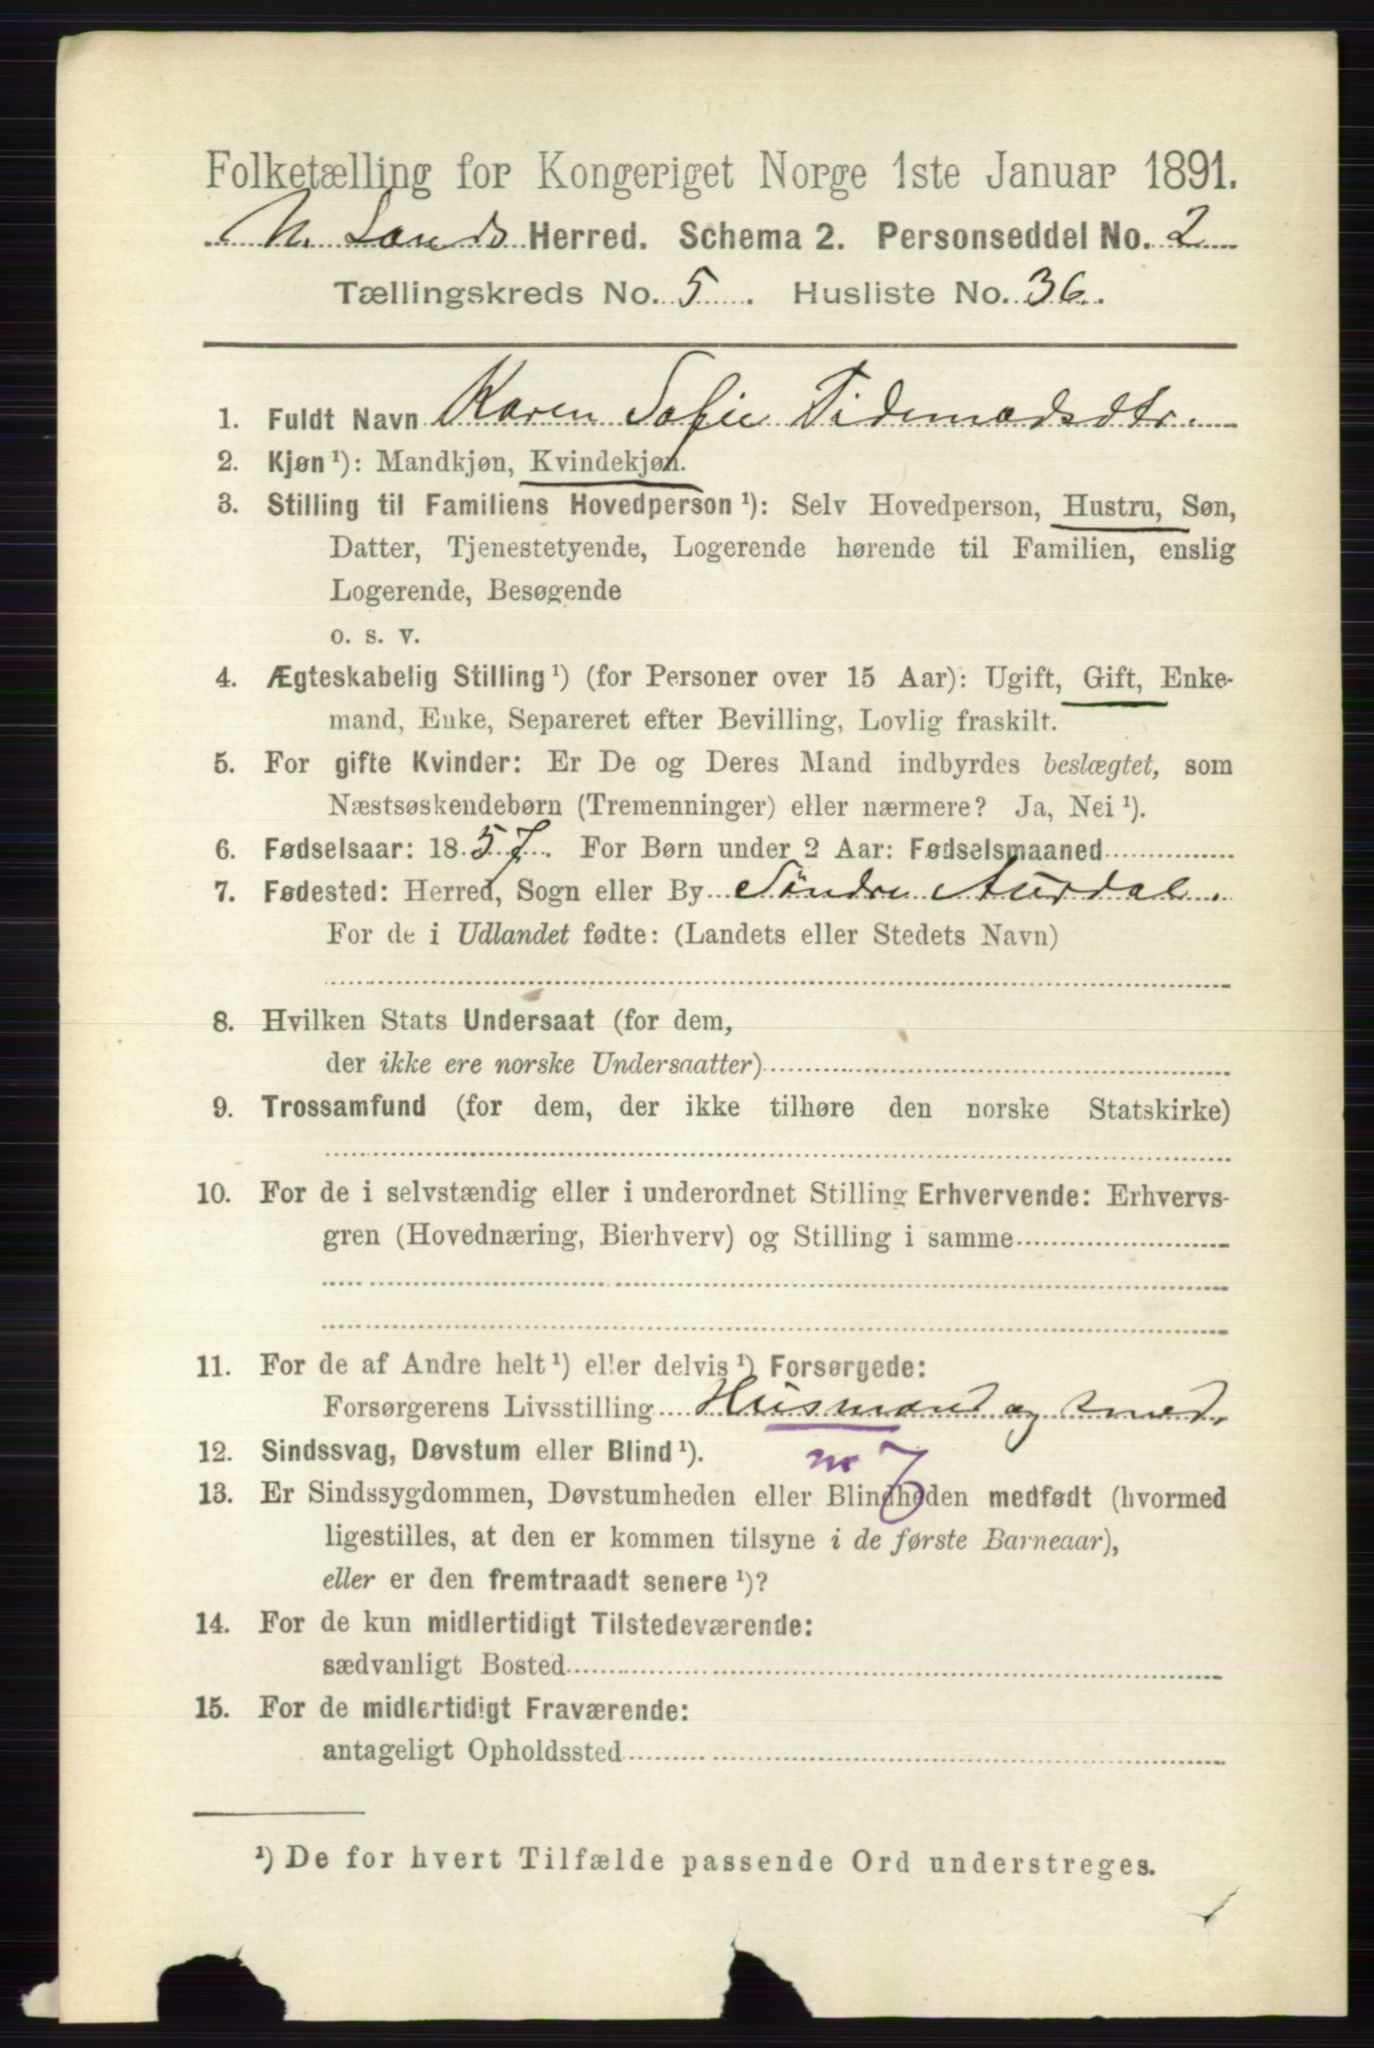 Folketælling for Kongeriget Norge 1ste Januar 1891.
N. Lands Herred. Schema 2. Personseddel No. 2
Tællingskreds No. 5. Husliste No. 36.
1. Fuldt Navn Karen Sofie Tidemadsdtr.
2. Kjøn ¹): Mandkjøn, Kvindekjøn.
3. Stilling til Familiens Hovedperson ¹): Selv Hovedperson, Hustru, Søn,
Datter, Tjenestetyende, Logerende hørende til Familien, enslig
Logerende, Besøgende
o. s. v.
4. Ægteskabelig Stilling ¹) (for Personer over 15 Aar): Ugift, Gift, Enke-
mand, Enke, Separeret efter Bevilling, Lovlig fraskilt.
5. For gifte Kvinder: Er De og Deres Mand indbyrdes beslægtet, som
Næstsøskendebørn (Tremenninger) eller nærmere? Ja, Nei ¹).
6. Fødselsaar: 1857. For Børn under 2 Aar: Fødselsmaaned
7. Fødested: Herred, Sogn eller By Søndre Aurdal.
For de i Udlandet fødte: (Landets eller Stedets Navn)
8. Hvilken Stats Undersaat (for dem,
der ikke ere norske Undersaatter)
9. Trossamfund (for dem, der ikke tilhøre den norske Statskirke)
10. For de i selvstændig eller i underordnet Stilling Erhvervende: Erhvervs-
gren (Hovednæring, Bierhverv) og Stilling i samme
11. For de af Andre helt ¹) eller delvis ¹) Forsørgede:
Forsørgerens Livsstilling Husmand og smed.
12. Sindssvag, Døvstum eller Blind ¹).
m 7
13. Er Sindssygdommen, Døvstumheden eller Blindheden medfødt (hvormed
ligestilles, at den er kommen tilsyne i de første Barneaar),
eller er den fremtraadt senere ¹)?
14. For de kun midlertidigt Tilstedeværende:
sædvanligt Bosted
15. For de midlertidigt Fraværende:
antageligt Opholdssted
¹) De for hvert Tilfælde passende Ord understreges.